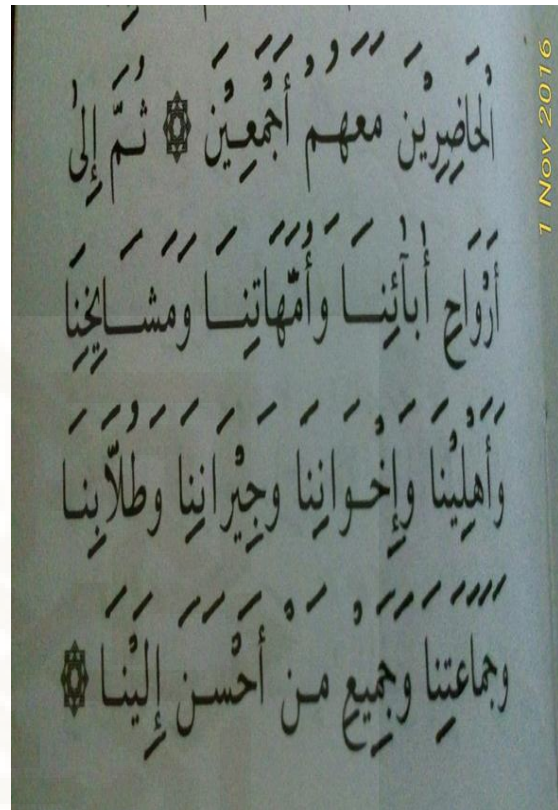 الْحَاضِرِيْنَ مَعَهُمْ أَجْمَعِيْنَ ۞ ثُمَّ إِلىٰ
أَرْوَاحِ أٰبآئِنَا وَأُمَّهَاتِنَا وَمَشَايِخِنَا
وَأَهْلِيْنَا وَإِخْوَانِنَا وَجِيْرَانِنَا وَطُلَّابِنَا
وَجَمَاعَتِنَا وَجَمِيْعِ مَنْ أَحْسَنَ إِلَيْنَا ۞
1 Nov 2016